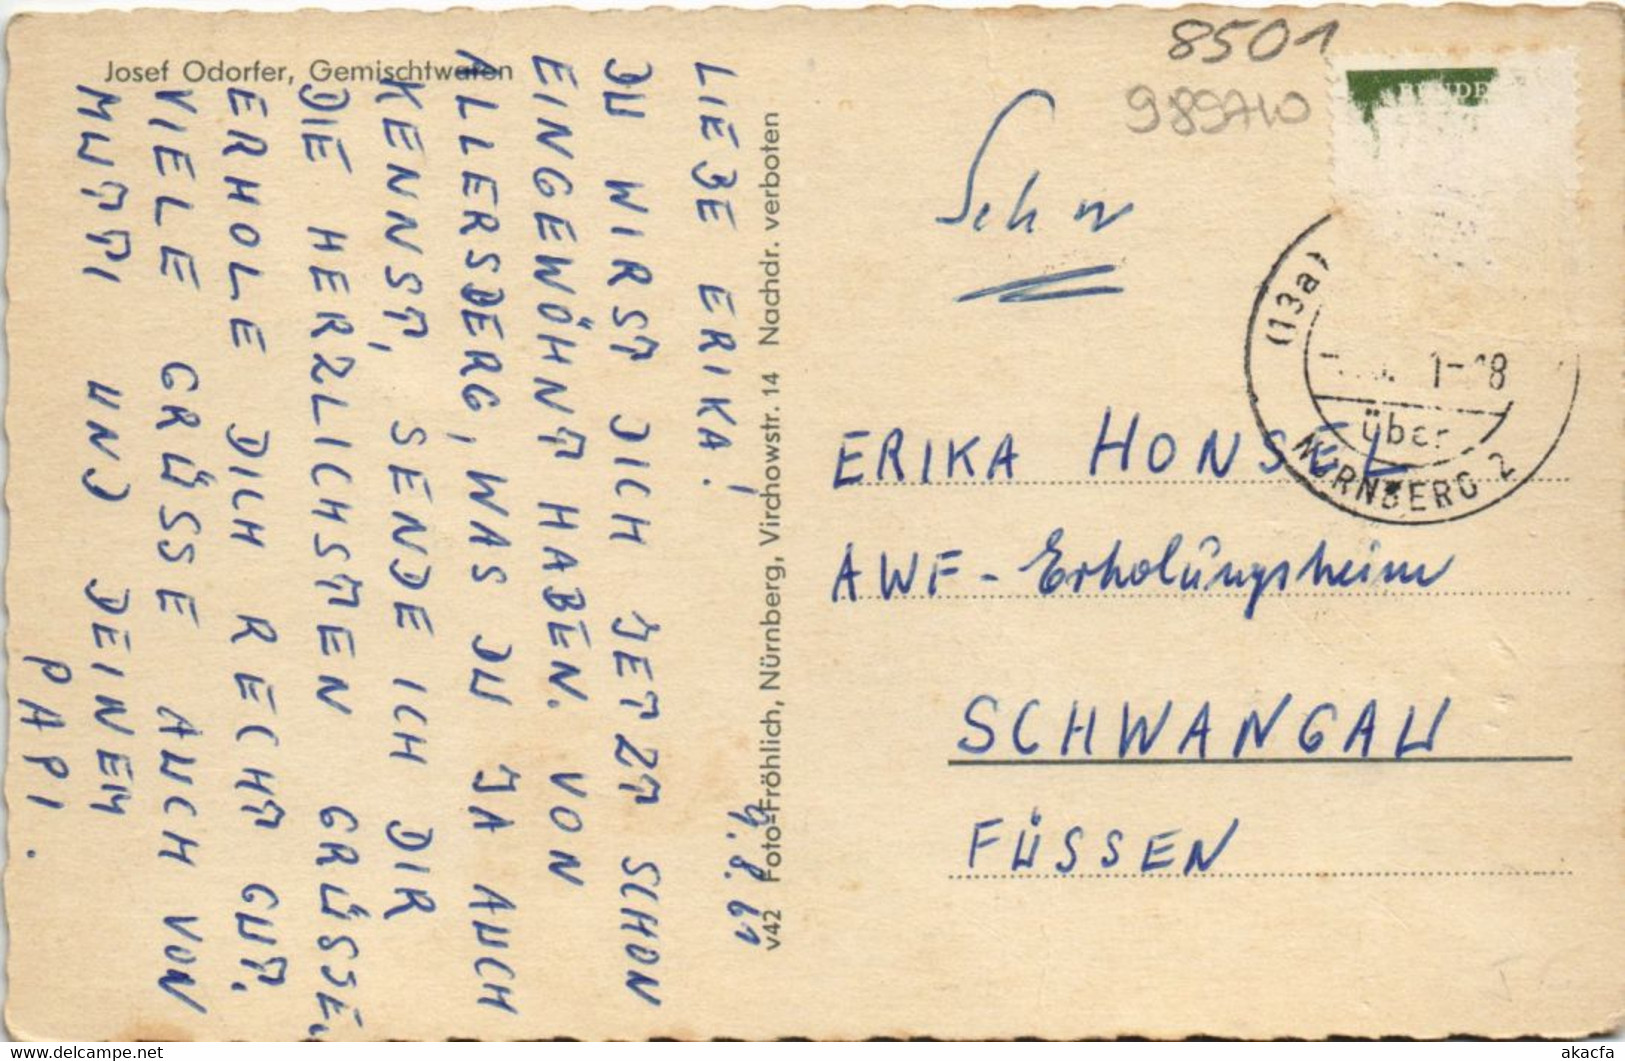 Josef Odorfer, Gemischtwaren
9.8.61
LIEBE ERIKA!
DU WIRST DICH JETZT SCHON
EINGEWÖHNT HABEN. VON
ALLERSBERG, WAS DU JA AUCH
KENNST, SENDE ICH DIR
DIE HERZLICHSTEN GRÜSSE,
ERHOLE DICH RECHT GUT.
VIELE GRÜSSE AUCH VON
MUTTI UND DEINEM
PAPI.
v42 Foto-Fröhlich, Nürnberg, Virchowstr. 14 Nachdr. verboten
8501
989710
BUNDE
Schw
(13a)
1-18
über
NÜRNBERG 2
ERIKA HONSEL
AWF - Erholungsheim
SCHWANGAU
FÜSSEN
akacfa